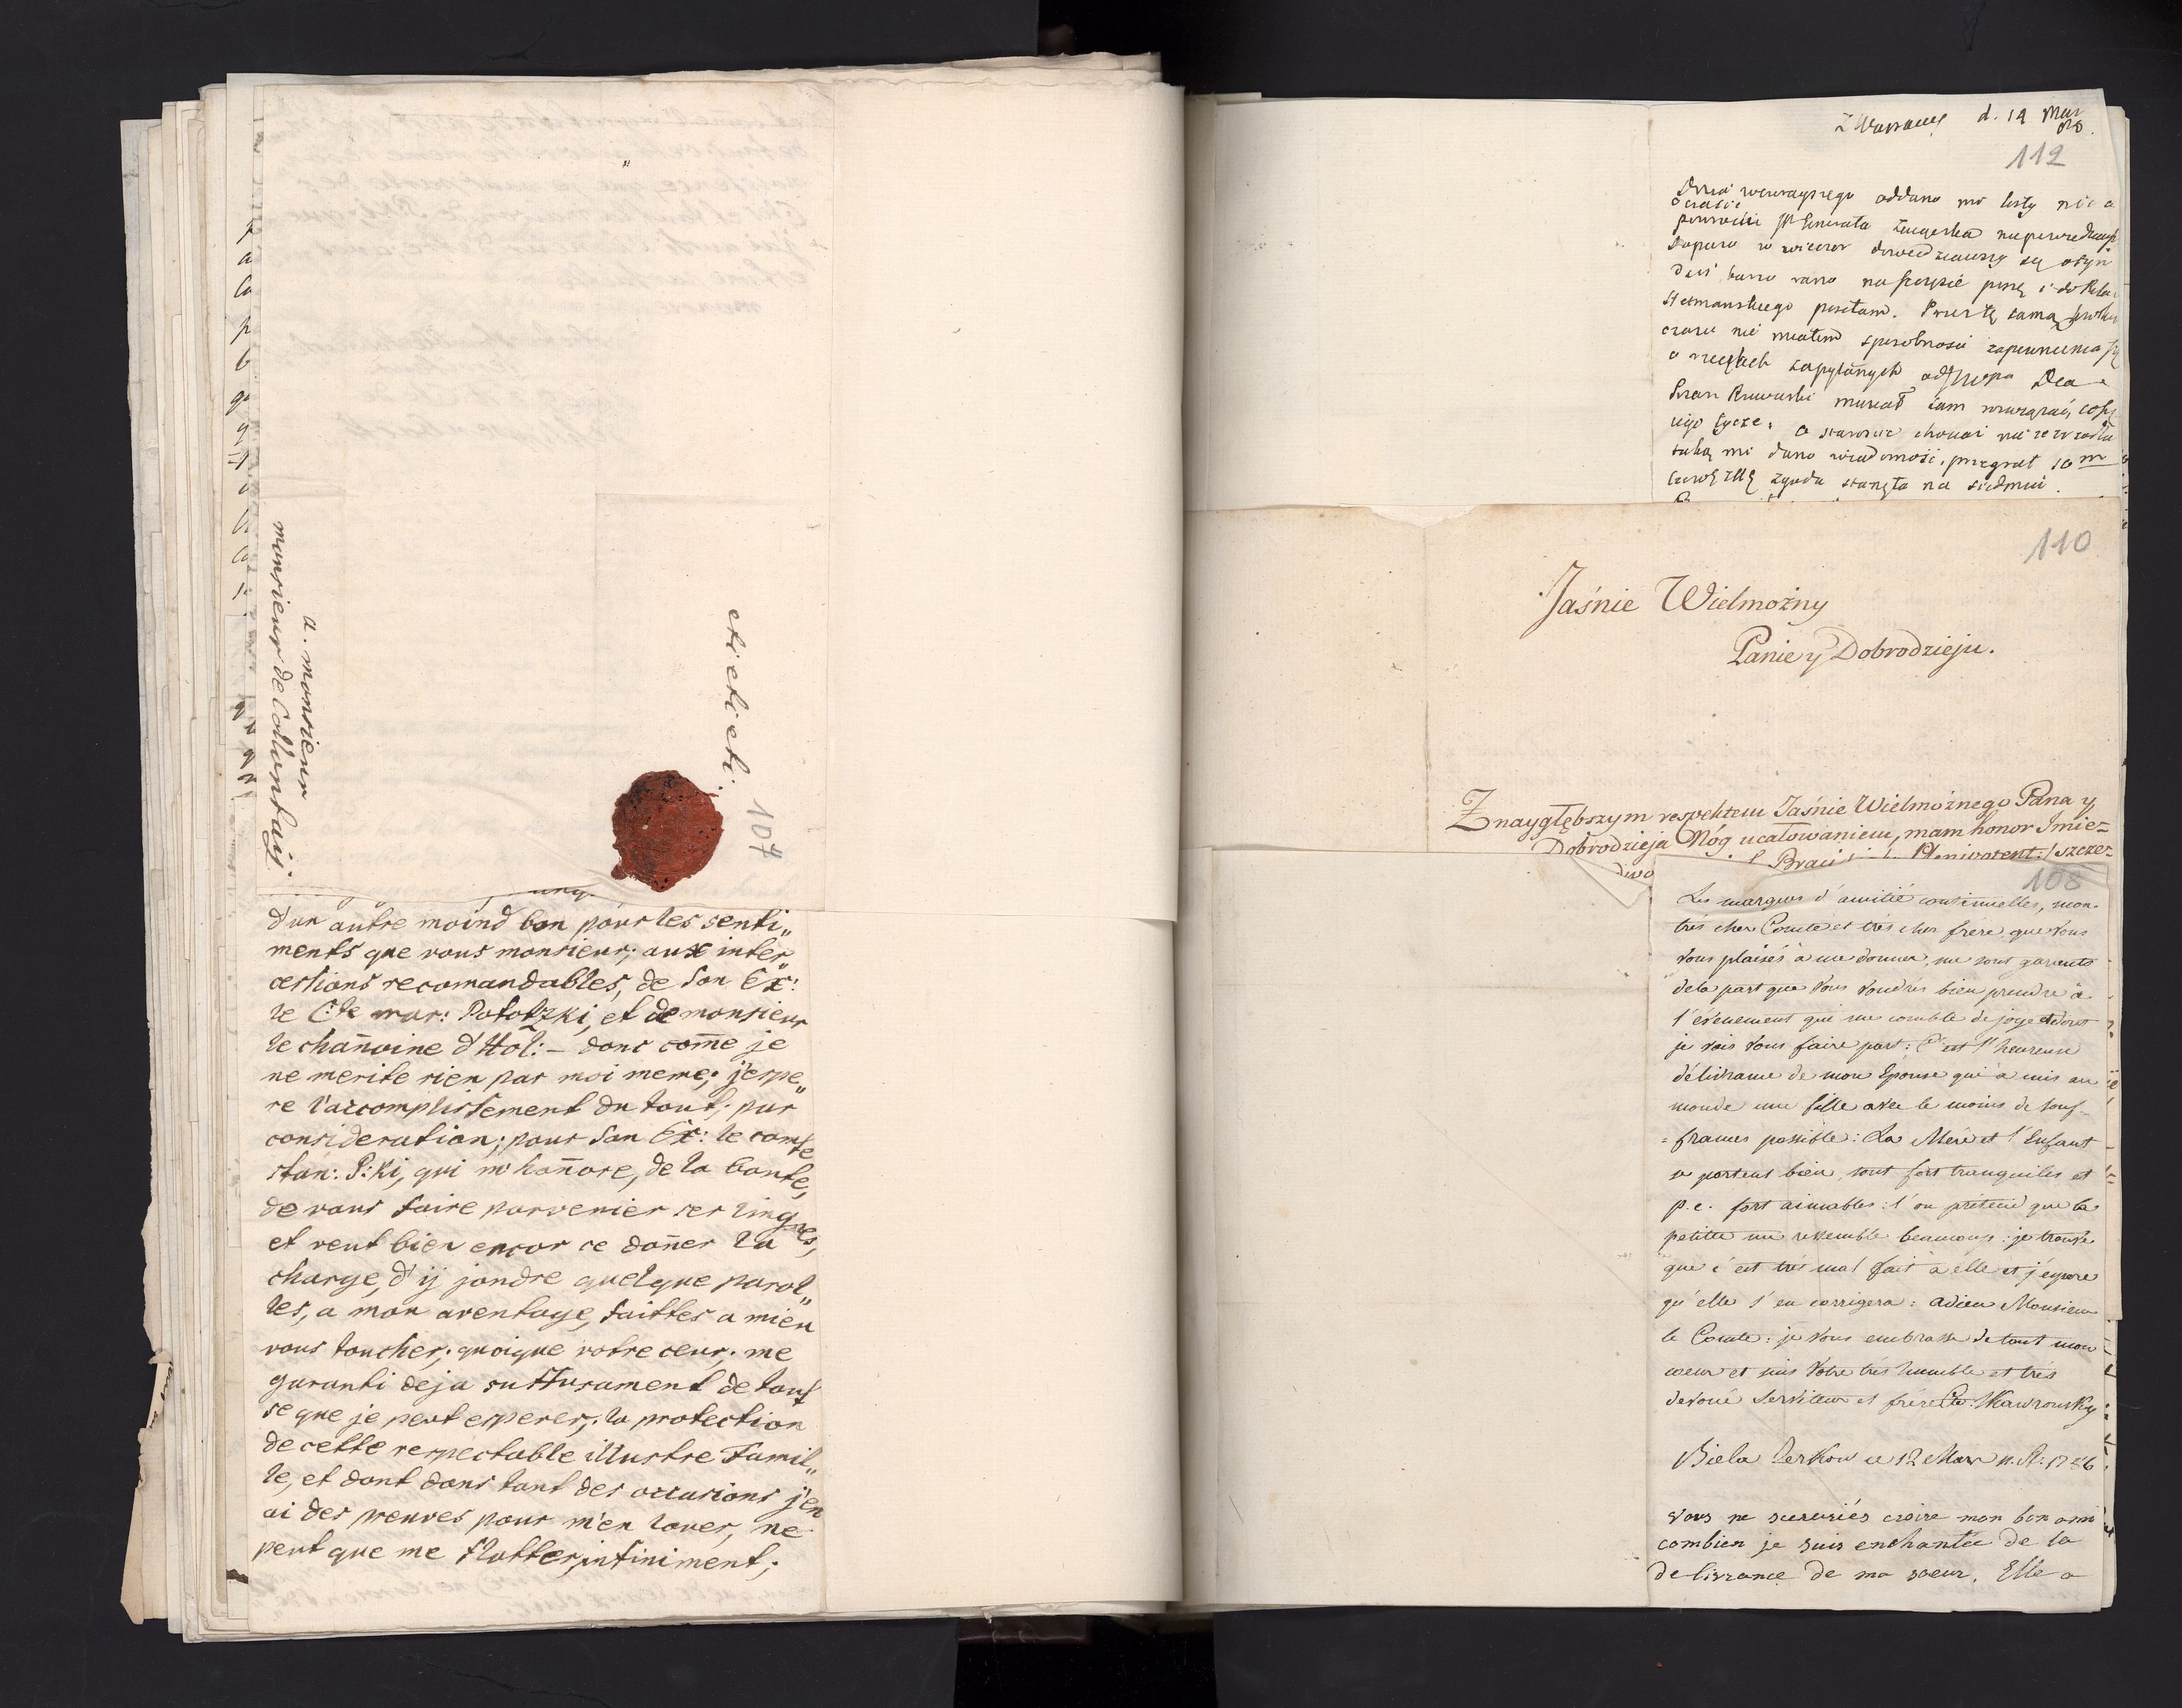 a. monsieur
monsieur de Collontaij.
etc etc etc.
107
d'un autre moind bon pour les senti„
ments que vous monsieur; aux inter„
cessions recomandables, de Son Ex:
le Cte mar: Pototzki, et de monsieur
le chanoine d'Hol: – donc comme je
ne merite rien par moi meme; j'espe„
re l'accomplissement du tout; par
consideration; pour Son Ex: le comte
stan: P:ki, qui m'honnore, de la bonte,
de vous faire parvenier ses lingnes,
et veut bien encor ce donner la
charge, d'ij jondre quelque parol„
les, a mon aventage, faittes a mieu
vous toucher; quoique votre ceur; me
garanti deja suffisament de tout
se que je peut esperer; la protection
de cette respectable illustre Famil„
le, et dont dans tant des occasions j'en
ai des preuves pour m'en louer, ne
peut que me flatter, infiniment;
Z Warszawy d. 19 Mar
112
Dnia wczorayszego oddano mi listy
powrocie JP Generała
dopuro w wieczor dowiedziawszy się o tym
dziś barzo rano na pocztę piszę i do
Hetmanskiego posłałem. Przez tę samą
czasu nie miałem sposobnosci zapewnienia się
o rzeczach zapytanych od
musiał tam
iego życze, o staroscie chociai nie ze zrzodła
taką mi dano wiadomość, przegrał 10 m
zgoda stanęła na siedmiu.
110
Jaśnie Wielmożny
Panie y Dobrodzieju.
Z naygłębszym respektem Jaśnie Wielmożnego Pana y
Dobrodzieja Nóg ucałowaniem, mam honor Imie=
Braci Plenipotent: szcze=
108
Les marques d'amitié continuelles, mon
très cher Comte et très cher frère, que vous
vous plaisés à me donner, me sont garants
dela part que vous voudrés bien prendre à
l'evenement qui me comble de joye et dont
je vais vous faire part: C'est l'heureuse
délivrance de mon Epouse qui a mis au
monde une fille avec le moins de souf-
=frances possible: La Mère et l'Enfant
se portent bien, sont fort tranquiles et
p.e. fort aimables: l'on prétend que la
petitte me ressemble beaucoup: je trouve
que c'est très mal fait à elle et j'espere
qu'elle s'en corrigera: adieu Monsieur
le Comte: je vous embrasse de tout mon
coeur et suis Votre très humble et très
devoué Serviteur et frère
Biela Zerkow ce 12 Mars n. St: 1786
vous ne sceuriés croire mon bon ami
combien je suis enchantée de la
delivrance de ma soeur. Elle a